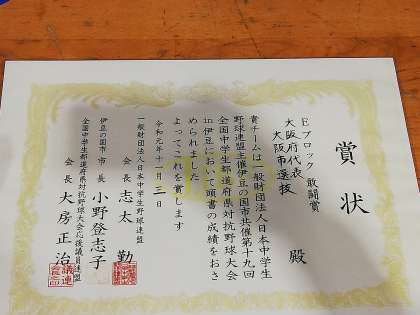 賞状
Eブロック 敢闘賞
大阪府代表
大阪市選抜 殿
貴チームは一般財団法人日本中学生
野球連盟主催伊豆の国市共催第十九回
全国中学生都道府県対抗野球大会
in伊豆において頭書の成績をおさ
められました
よってこれを賞します
令和元年十一月三日
一般財団法人日本中学生野球連盟
会長 志太 勤
伊豆の国市 市長 小野登志子
全国中学生都道府県対抗野球大会応援議員連盟
会長 大房正治